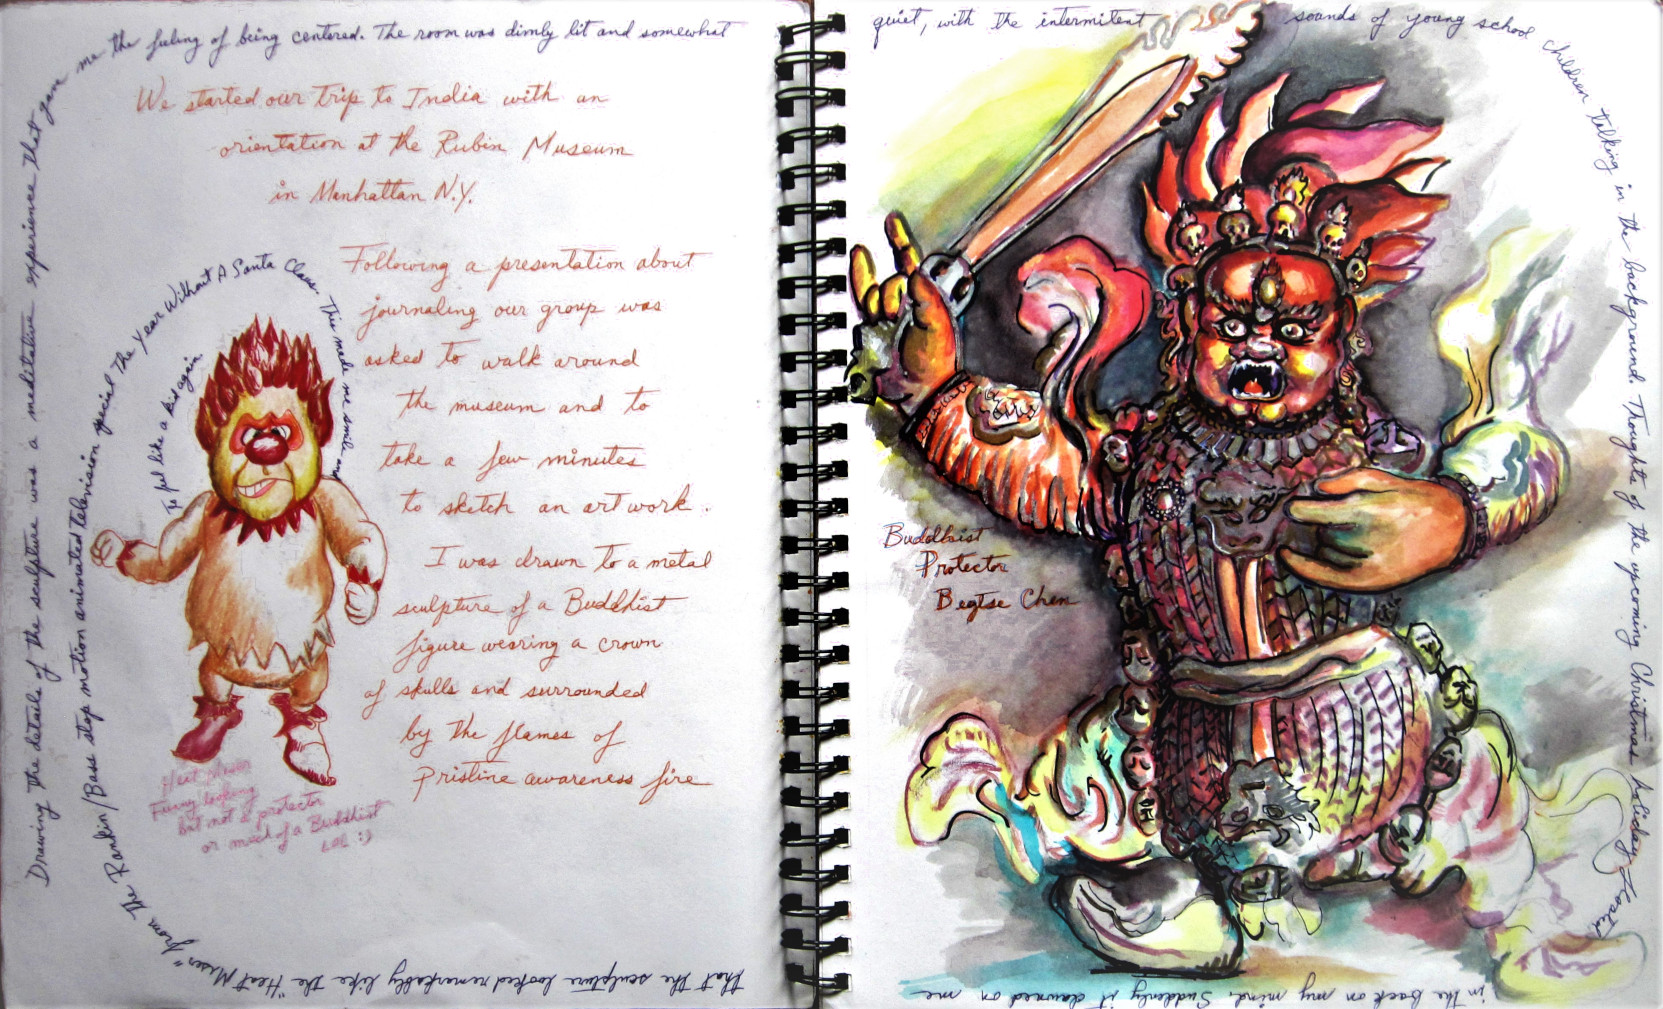 We started our trip to India with an
orientation at the Rubin Museum
in Manhattan N.Y.
Following a presentation about
journaling our group was
asked to walk around
the museum and to
take a few minutes
to sketch an art work.
I was drawn to a metal
sculpture of a Buddhist
figure wearing a crown
of skulls and surrounded
by the flames of
Pristine awareness fire
Drawing the details of the sculpture was a meditative experience that gave me the feeling of being centered. The room was dimly lit and somewhat
quiet, with the intermitent sounds of young school children talking in the background. Thoughts of the upcoming Christmas holiday floated
in the back on my mind. Suddenly it dawned on me
that the sculpture looked remarkably like the "Heat Miser" from The Rankin/Bass stop motion animated television special The Year Without A Santa Claus. This made me smile and
To feel like a kid again.
Heat Miser
Funny looking
but not a protector
or much of a Buddhist
LOL :)
Buddhist
Protector
Begtse Chen